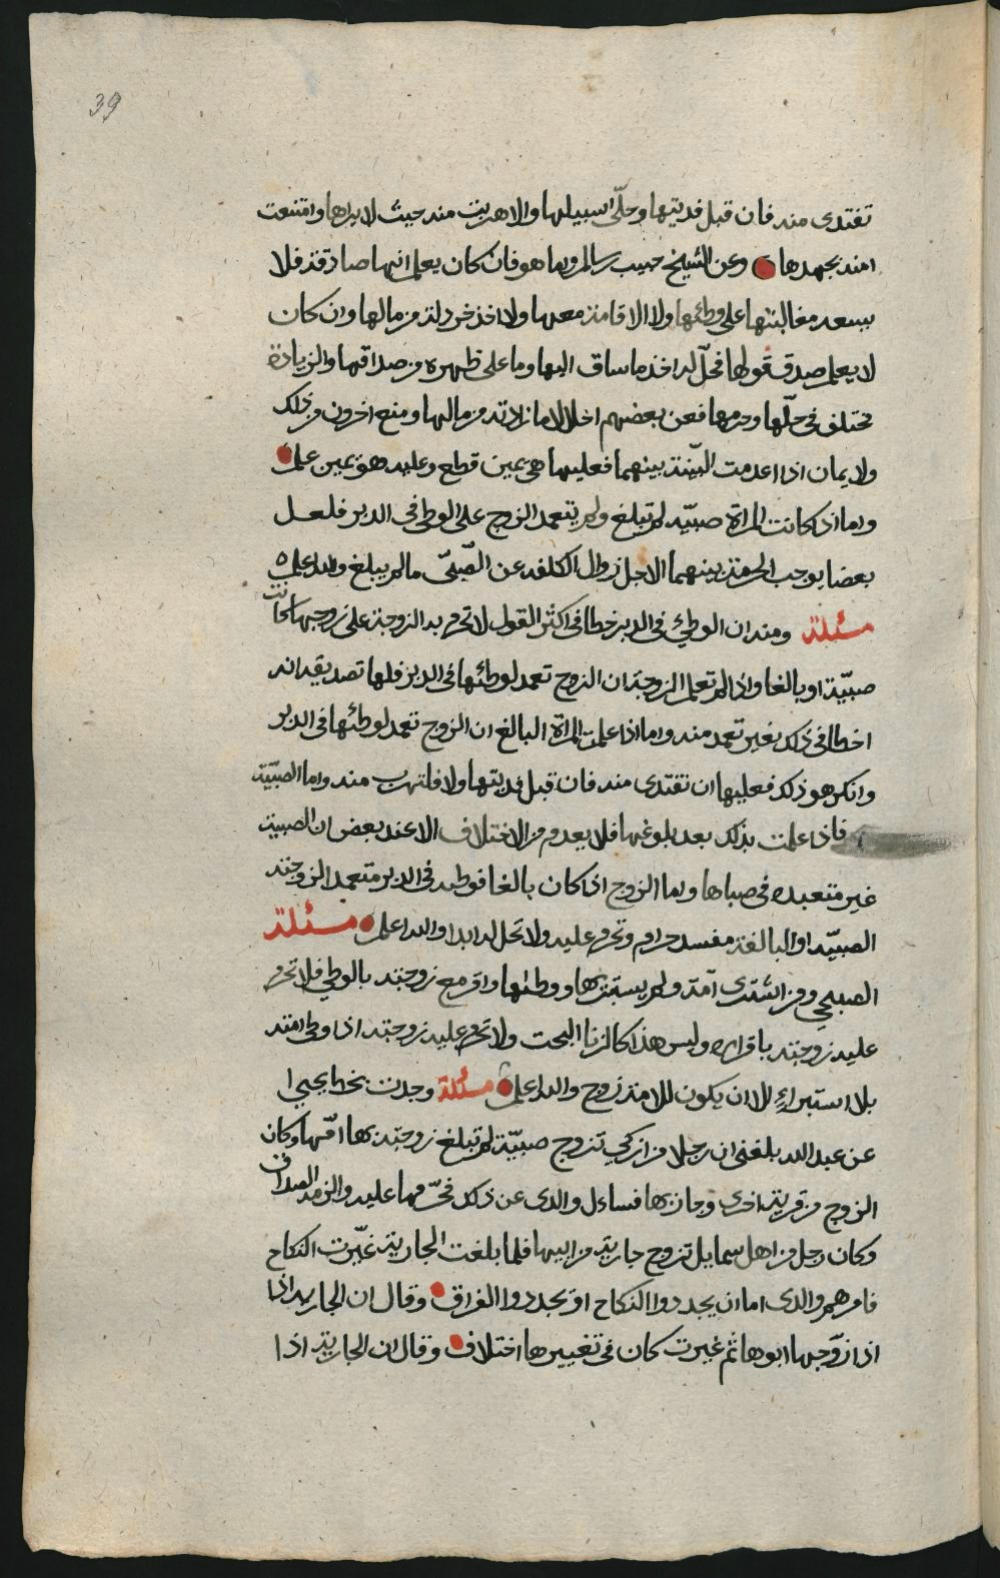 39
تفتدى منه فان قبل فديتها وخلّى سبيلها والا هربت منه حيث لا يراها وامتنعت
منه بجهدها وعن الشيخ حبيب بن سالم واما هو فان كان يعلم انها صادقة فلا
يسعه مغالبتها على وطئها ولا الاقامة معها ولا اخذ خردلة من مالها وان كان
لا يعلم صدق قولها فحلّ له اخذ ما ساق اليها وما على ظهره من صداقها والزيادة
تختلف فى حلّها وحرمها فعن بعضهم احلال لا ما زادته من مالها ومنع اخرون من ذلك
والايمان اذا اعدمت البيّنة بينهما فعليها هى يمين قطع وعليه هو يمين علم
واما اذ كانت المراة صبيّه لم تبلغ ولم يتعمد الزوج على الوطى فى الدبر فلعل
بعضا يوجب الحرمة بينهما لاجل زوال الكلفه عن الصّبىّ مالم يبلغ والله اعلم
مسئلة ومنه ان الوطئ فى الدبر خطا فى اكثر القول لا تحرم به الزوجة على زوجها كانت
صبيّة او بالغا واذا لم تعلم الزوجة ان الزوج تعمد لوطئها فى الدبر فلها تصديقه انه
اخطا فى ذلك بغير تعمد منه واما اذا علمت المراة البالغ ان الزوج تعمد لوطئها فى الدبر
وانكر هو ذلك فعليها ان تفتدى منه فان قبل فديتها ولا فلتهرب منه واما الصبيّة
فاذا علمت بذلك بعد بلوغها فلا يعدوم من الاختلاف الا عند بعض ان الصبية
غير متعبده فى صباها واما الزوج اذا كان بالغا فوطيه فى الدبر متعمد الزوجته
الصبيّه او البالغة مفسد حرام وتحرم عليه ولا تحل له ابدا والله اعلم مسئلة
الصبحي ومن اشترى امة ولم يستبريها ووطئها واقر مع زوجته بالوطى فلا تحرم
عليه زوجته باقراره وليس هذا كالزنا البحت ولا تحرم عليه زوجته اذا وطى امته
بلا استبراء الا ان يكون للامة زوج والله اعلم مسئلة وجدت بخط يحيى ا
عن عبد الله بلغنى ان رجلا من ازكى تزوج صبيّة لم تبلغ زوجته بها امّها وكان
الزوج من قرية اخرى وجاز بها فساءل والدى عن ذلك فحرّمها عليه والزمه الصداق
وكان رجل من اهل سمايل تزوج جارية من ابيها فلما بلغت الجارية غيّرت النكاح
فامرهم والدى اما ان يجددوا النكاح او يجددوا الفراق وقال ان الجاريه اذا
اذا زوّجها ابوها ثم غيرت كان فى تغييرها اختلاف وقال ان الجارية اذا